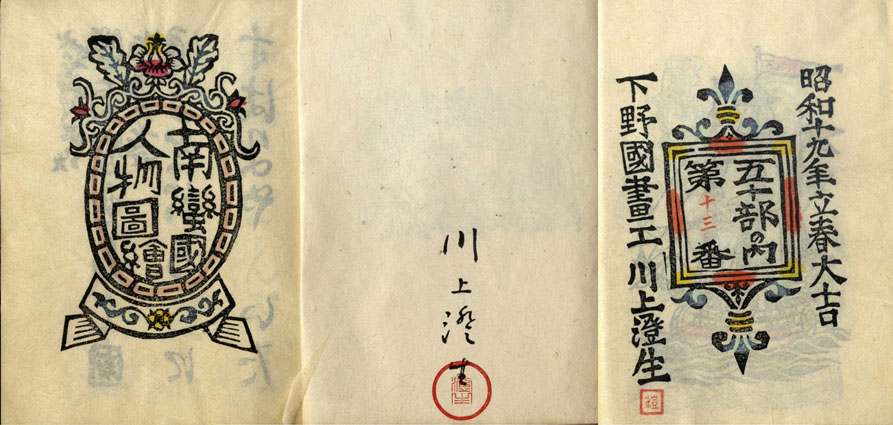 南蠻國
人物圖繪
川上澄生
昭和十九年立春大吉
五十部の内
第十三番
下野國畫工川上澄生